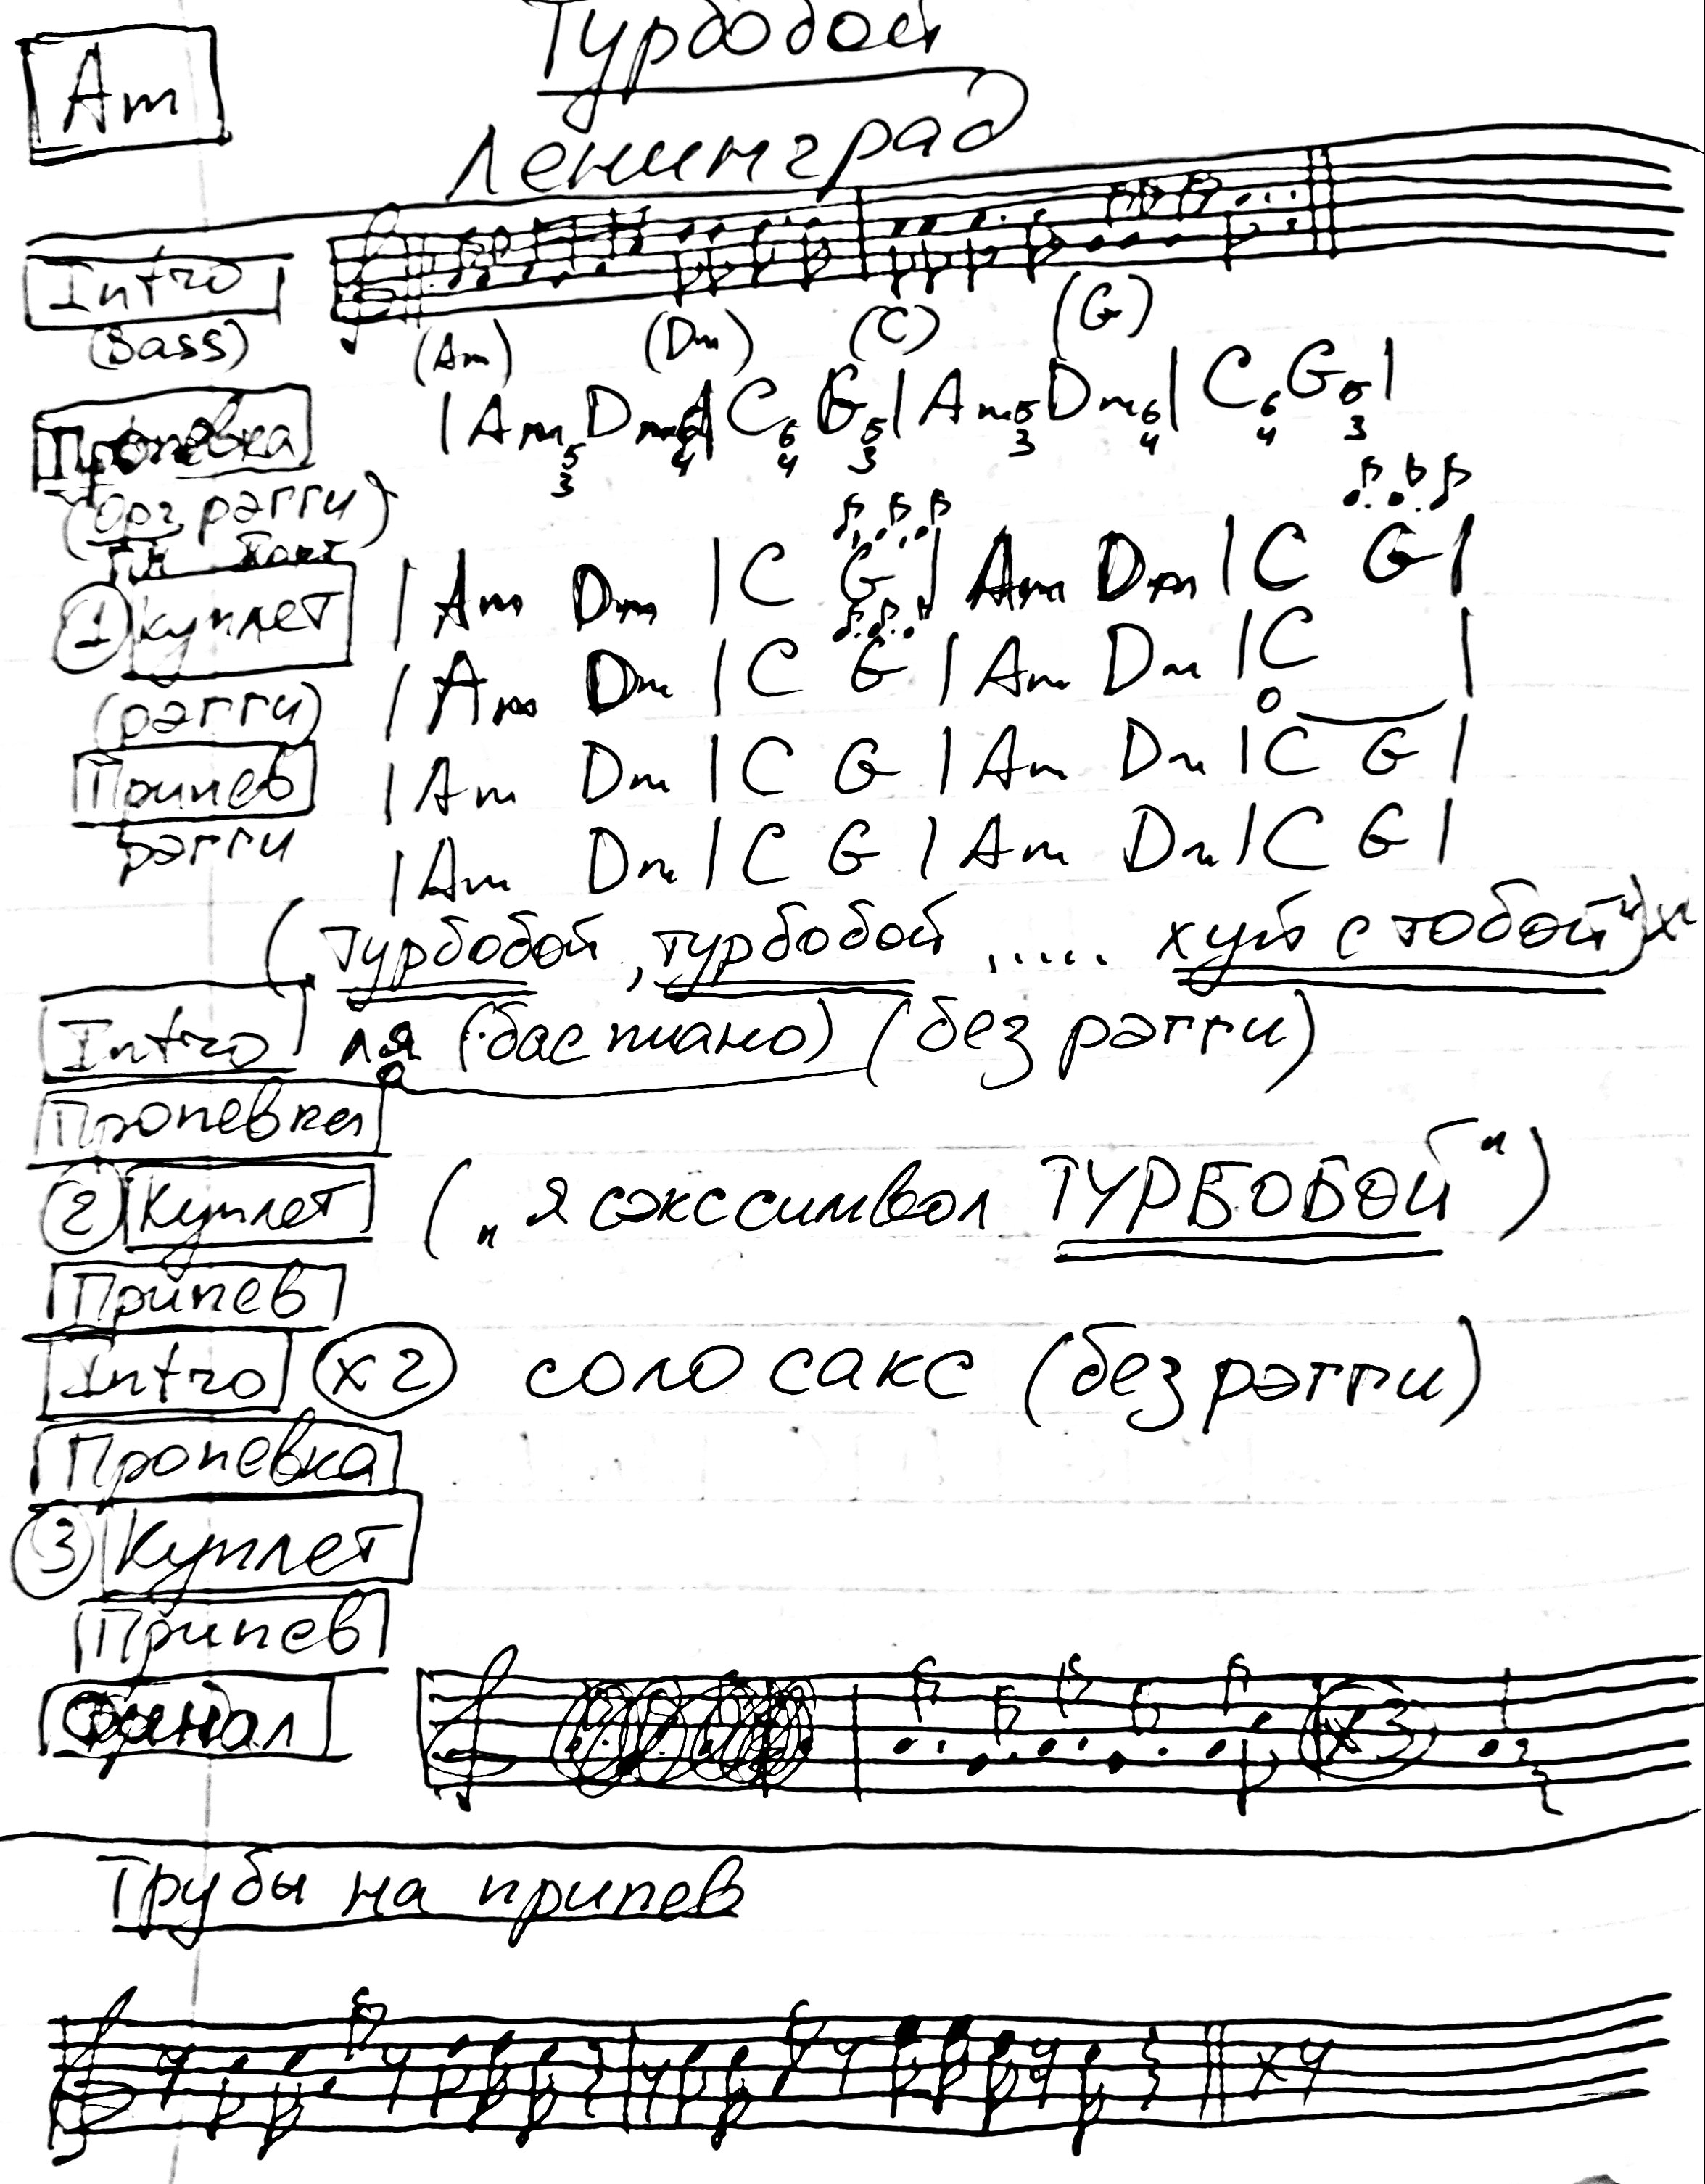 Турбобой
Am
Ленинград
Intro
(Bass)
(Am) (Dm) (C) (G)
Пропевка | Am 5 3 Dm 6 4 | C 6 4 G 5 3 | Am 5 3 Dm 6 4 | C 6 4 G 5 3 |
рэгги)
① Куплет | Am Dm | C G | Am Dm | C G |
(рэгги) | Am Dm | C G | Am Dm | C |
Припев | Am Dm | C G | Am Dm | C G |
рэгги | Am Dm | C G | Am Dm | C G |
(Турбобой, турбобой, ..... хуй с тобой")
Intro ля (бас пиано) (без рэгги)
Пропевка
② Куплет („я сэкссимвол ТУРБОБОЙ")
Припев
Intro x2 соло сакс (без рэгги)
Пропевка
③ Куплет
Припев
Финал x3
Трубы на припев
x4